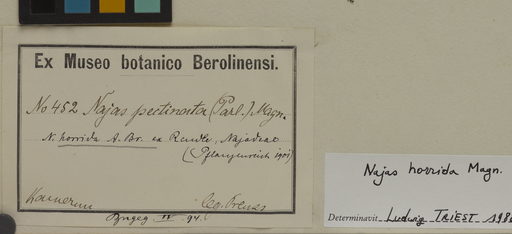 Ex Museo botanico Berolinensi.
No 452 Najas pectinata (Parl.) Magn.
N. horrida A. Br. ex Rendle, Najadeae
(Pflanzenreich 1901)
Kamerun leg. Preuss
IV 94.
Najas horrida Magn.
Determinavit Ludwig TRIEST